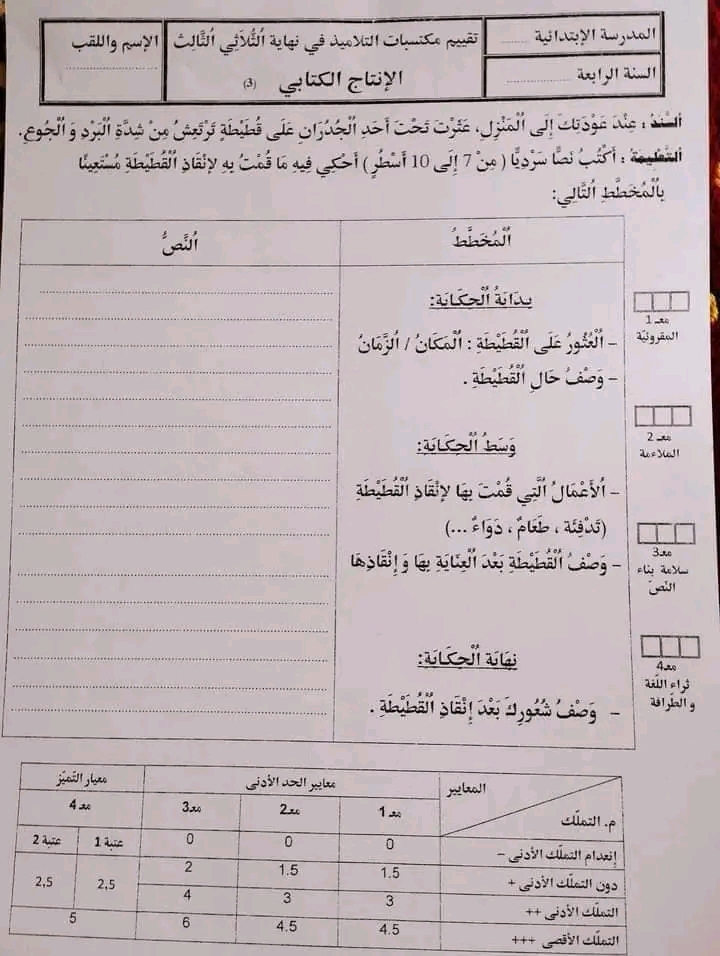 المدرسة الإبتدائية ..........
السنة الرابعة ..........
تقييم مكتسبات التلاميذ في نهاية اُلثُّلَاثِي اُلثَّالِث
الإنتاج الكتابي (3)
الإسم واللقب
..........
اُلسّنَدُ : عِنْدَ عَوْدَتِكَ إِلَى اُلْمَنْزِلِ، عَثَرْتَ تَحْتَ أَحَدِ اُلْجُدْرَانِ عَلَى قُطَيْطَةٍ تَرْتَعِشُ مِنْ شِدَّةِ اُلْبَرْدِ وَ اُلْجُوعِ.
اُلتّعْلِيمَة : أَكْتُبُ نَصًّا سَرْدِيًّا ( مِنْ 7 إِلَى 10 أَسْطُرٍ ) أَحْكِي فِيهِ مَا قُمْتُ بِهِ لِإِنْقَاذِ اُلْقُطَيْطَةِ مُسْتَعِينًا
بِاُلْمُخَطَّطِ اُلتَّالِي:
اُلْمُخَطَّطُ
اُلنَّصُّ
بِدَايَةُ اُلْحِكَايَةِ:
- اُلْعُثُورُ عَلَى اُلْقُطَيْطَةِ : اُلْمَكَانُ / اُلزَّمَانُ
- وَصْفُ حَالِ اُلْقُطَيْطَةِ .
وَسَطُ اُلْحِكَايَةِ:
- اُلأَعْمَالُ اُلَّتِي قُمْتَ بِهَا لِإِنْقَاذِ اُلْقُطَيْطَةِ
(تَدْفِئَة ، طَعَامٌ ، دَوَاءٌ ...)
- وَصْفُ اُلْقُطَيْطَةِ بَعْدَ اُلْعِنَايَةِ بِهَا وَ إِنْقَاذِهَا
نِهَايَةُ اُلْحِكَايَةِ:
- وَصْفُ شُعُورِكَ بَعْدَ إِنْقَاذِ اُلْقُطَيْطَةِ .
معـ 1
المقروئيّة
معـ 2
الملاءمة
معـ3
سلامة بناء
النّصّ
معـ4
ثراء اللّغة
و الطّرافة
المعايير
م. التملّك
معايير الحد الأدنى
معيار التّميّز
معـ 1
معـ2
معـ3
معـ 4
عتبة 1
عتبة 2
إنعدام التملّك الأدنى –
0
0
0
دون التملّك الأدنى +
1.5
1.5
2
2,5
2,5
التملّك الأدنى ++
3
3
4
التملّك الأقصى +++
4.5
4.5
6
5